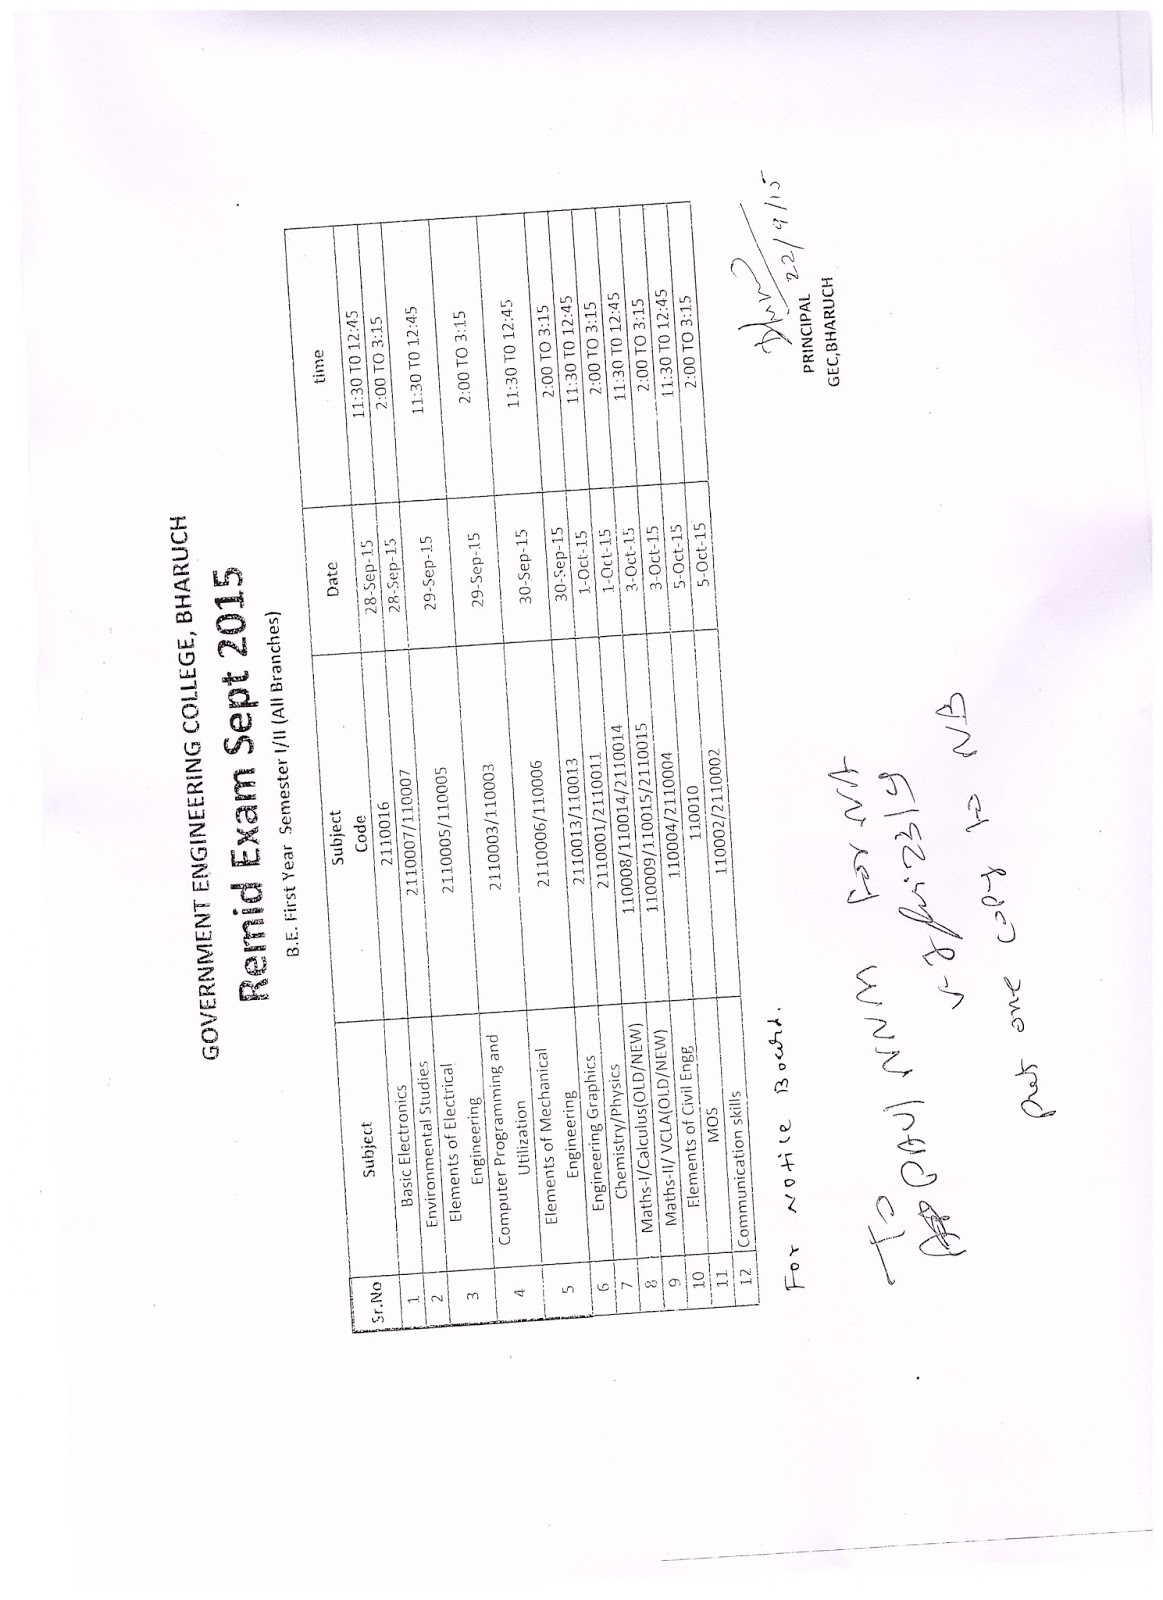 GOVERNMENT ENGINEERING COLLEGE, BHARUCH
Remid Exam Sept 2015
B.E. First Year Semester I/II (All Branches)
Sr.No Subject Subject Code Date time
1 Basic Electronics 2110016 28-Sep-15 11:30 TO 12:45
2 Environmental Studies 2110007/110007 28-Sep-15 2:00 TO 3:15
3 Elements of Electrical Engineering 2110005/110005 29-Sep-15 11:30 TO 12:45
4 Computer Programming and Utilization 2110003/110003 29-Sep-15 2:00 TO 3:15
5 Elements of Mechanical Engineering 2110006/110006 30-Sep-15 11:30 TO 12:45
6 Engineering Graphics 2110013/110013 30-Sep-15 2:00 TO 3:15
7 Chemistry/Physics 2110001/2110011 1-Oct-15 11:30 TO 12:45
8 Maths-I/Calculus(OLD/NEW) 110008/110014/2110014 1-Oct-15 2:00 TO 3:15
9 Maths-II/ VCLA(OLD/NEW) 110009/110015/2110015 3-Oct-15 11:30 TO 12:45
10 Elements of Civil Engg 110004/2110004 3-Oct-15 2:00 TO 3:15
11 MOS 110010 5-Oct-15 11:30 TO 12:45
12 Communication skills 110002/2110002 5-Oct-15 2:00 TO 3:15
22/9/15
PRINCIPAL
GEC,BHARUCH
For Notice Board.
To
NNM For
23/9
put one copy to NB